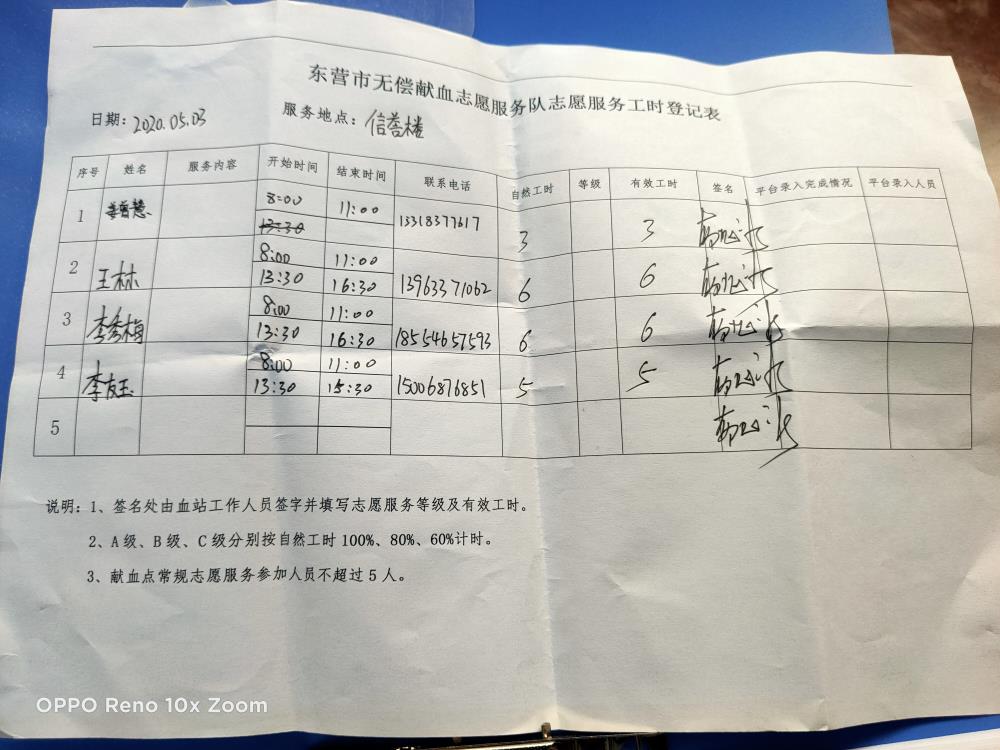 东营市无偿献血志愿服务队志愿服务工时登记表
日期：2020.05.03 服务地点：信誉楼
序号 姓名 服务内容 开始时间 结束时间 联系电话 自然工时 等级 有效工时 签名 平台录入完成情况 平台录入人员
1 8:00 11:00 13318377617 3 3
13:30
2 王林 8:00 11:00 13963371062 6 6
13:30 16:30
3 李秀梅 8:00 11:00 18554657593 6 6
13:30 16:30
4 李友玉 8:00 11:00 15006876851 5 5
13:30 15:30
5
说明：1、签名处由血站工作人员签字并填写志愿服务等级及有效工时。
2、A级、B级、C级分别按自然工时100%、80%、60%计时。
3、献血点常规志愿服务参加人员不超过5人。
OPPO Reno 10x Zoom